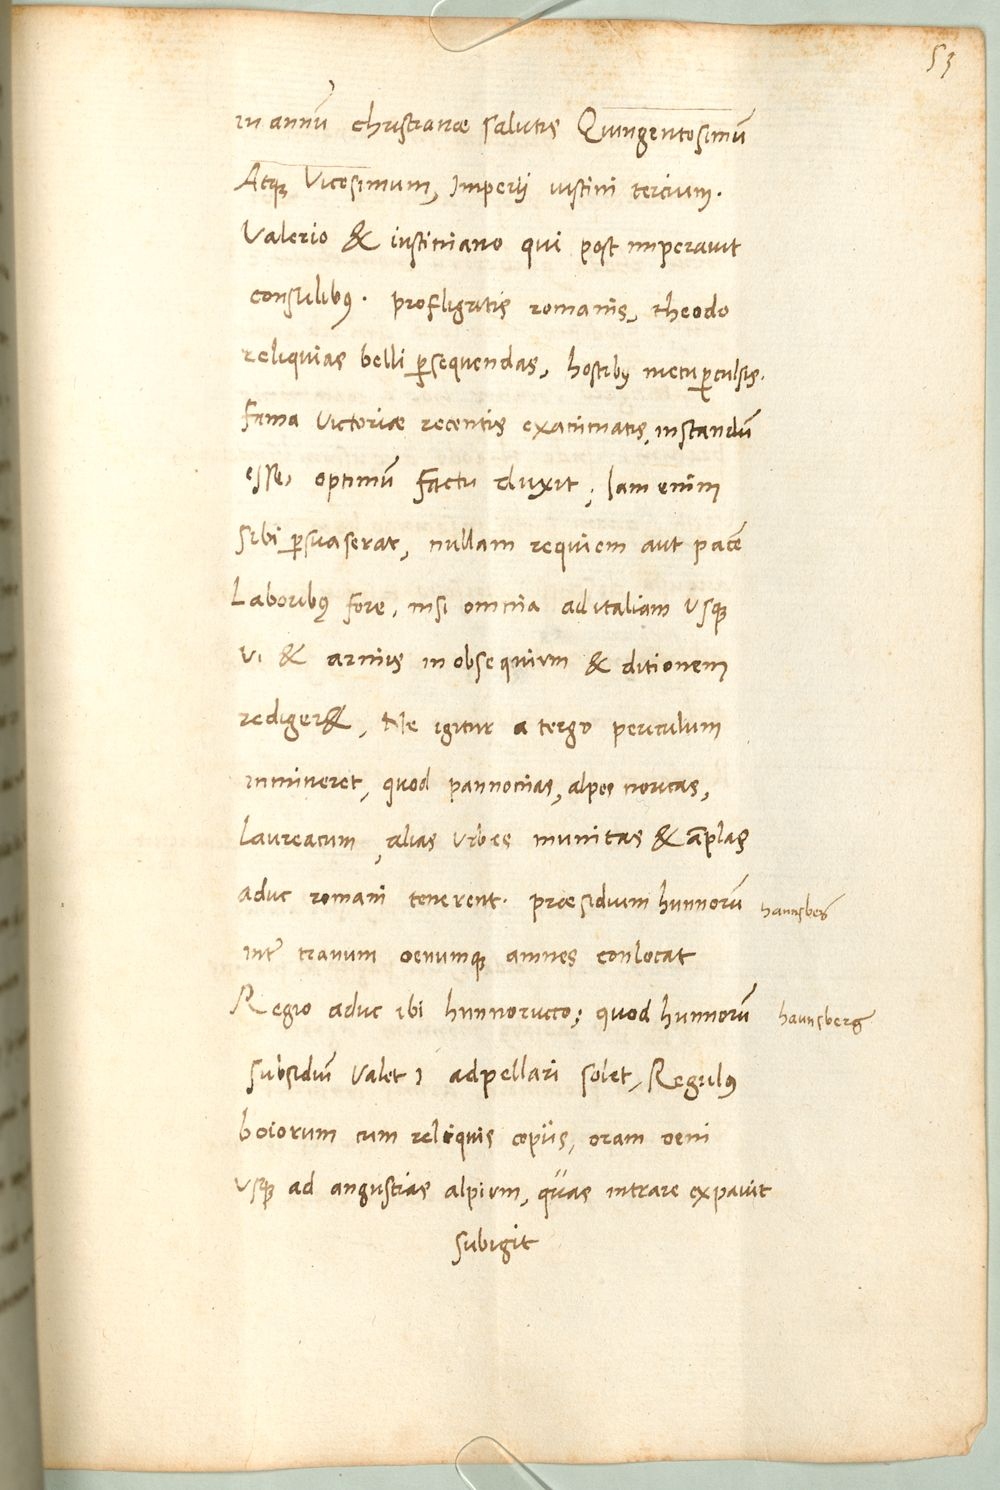 53
in annū christianæ salutis Quingentosimū
Atqꝫ Vicesimum, Imperij iustini tercium.
Valerio & iustiniano qui post imperauit
consulibꝰ. profligatis romanis, theodo
reliquias belli ꝑsequendas, hostibꝰ metu ꝑculsis.
fama victoriæ recentis exanimatis, instandū
esse, optimū factu duxit, Iam enim
sibi ꝑsuaserat, nullam requiem aut pacē
Laboribꝰ fore, nisi omnia ad italiam usqꝫ
vi & armis in obsequium & ditionem
rediger&, Ne igitur a tergo periculum
inmineret, quod pannonias, alpes noricas,
Laureacum, alias urbes munitas & āplas
aduc romani tenerent. præsidium hunnorū haunsberg
int̄ trauum oenumqꝫ amnes conlocat
Regio aduc ibi hunnorucco, quod hunnorū haunsberg
subsidiū valet) adpellari solet, Regulꝰ
boiorum cum reliquis copiis, oram oeni
usqꝫ ad angustias alpium, quas intrare expauit
subigit